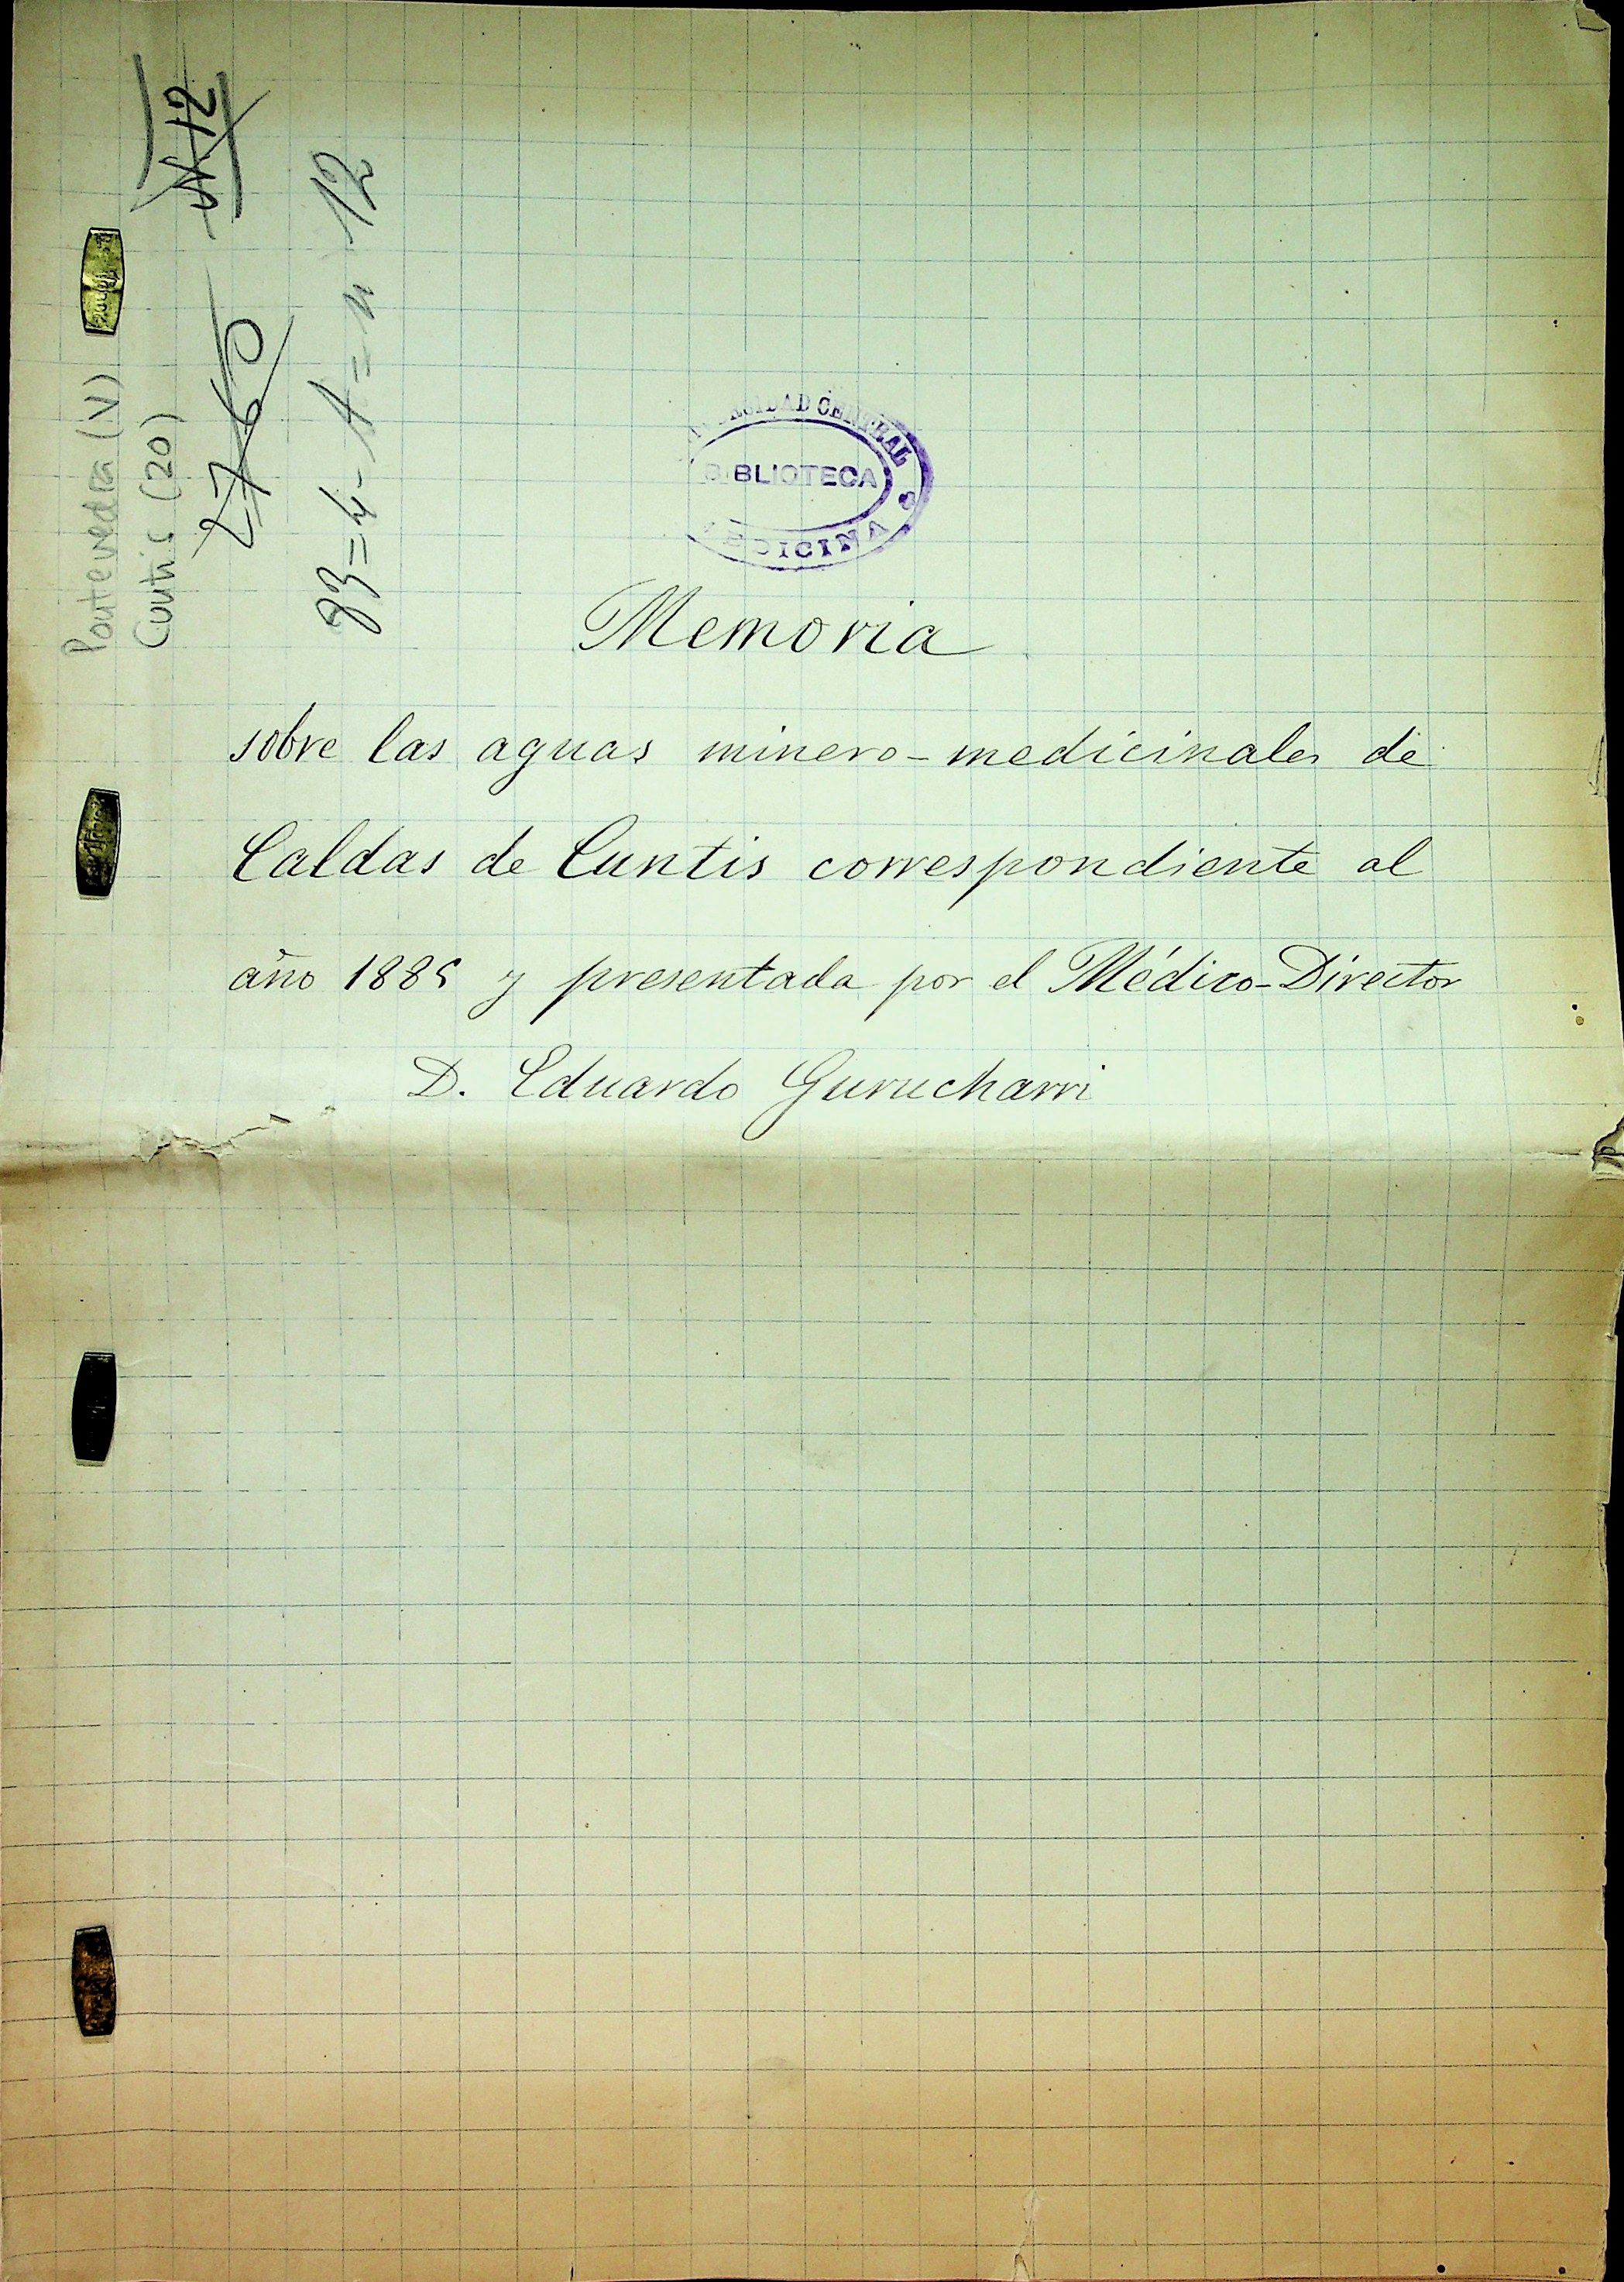 Pontevedra (V)
Cuntis (20)
N 12
2760
83=4-A=n 12
BIBLIOTECA
MEDICINA
Memoria
sobre las aguas minero-medicinales de
Caldas de Cuntis correspondiente al
año 1885 y presentada por el Médico-Director
D. Eduardo Gurucharri